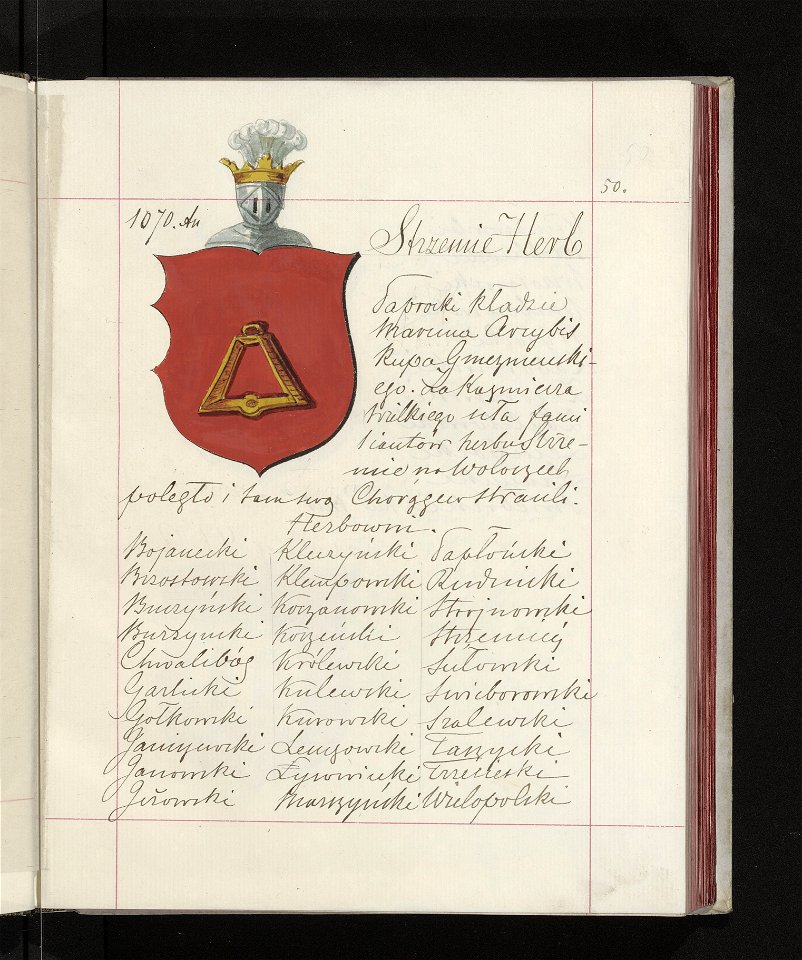 50.
1070. An
Strzemie Herb
Paprocki kładzie
Marcina Arcybis
kupa Gnieznienski-
ego. Za Kazmierza
Wielkiego siła fami
liantów herbu Strze-
mie na Wołoszech
poległo i tam swą Chorągiew stracili.
Herbowni.
Bojanecki Kluczyński Papłoński
Brzostowski Klempowski Rudnicki
Buczyński Koczanowski Strojnowski
Burzyński Korzeński Strzemię
Chwalibóg Królewski Sułowski
Garlicki Kulewski Swieborowski
Gołkowski Kurowski Szalewski
Janiszewski Lengowski Taszycki
Janowski Łysowicki Trzecieski
Jeżowski Marszyński Wielopolski